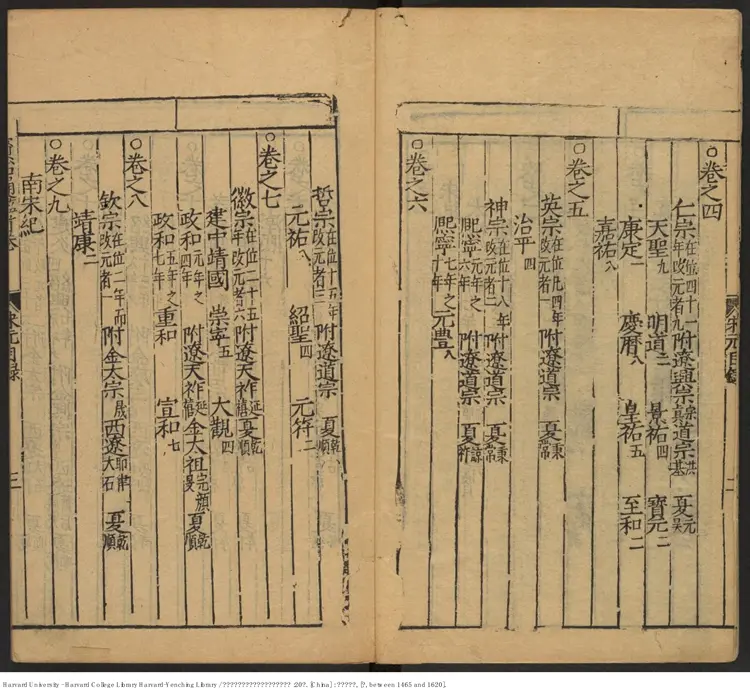 ○卷之四
仁宗在位四十一年改元者九附遼興宗宗真道宗洪基夏元昊
天聖九 明道二 景祐四 寶元二
康定一 慶曆八 皇祐五 至和二
嘉祐八
○卷之五
英宗在位凡四年改元者一附遼道宗 夏秉常
治平四
神宗在位十八年改元者二附遼道宗 夏秉常
熙寧元年之六年 附遼道宗 夏諒祚
熙寧七年之十年 元豐八
○卷之六
宋元目錄 二
哲宗在位十五年改元者三附遼道宗 夏乾順
元祐八 紹聖四 元符二
○卷之七
徽宗在位二十五年改元者六附遼天祚延禧夏乾順
建中靖國 崇寧五 大觀四
政和元年之四年 附遼天祚延禧金太祖完顏旻夏乾順
政和五年之七年 重和 宣和七
○卷之八
欽宗在位二年而改元者一附金太宗晟西遼耶律大石 夏乾順
靖康二
○卷之九
南宋紀
宋元目錄 三
Harvard University - Harvard College Library Harvard-Yenching Library / ?????????????????? :20?. [China] : ?????, [?, between 1465 and 1620].